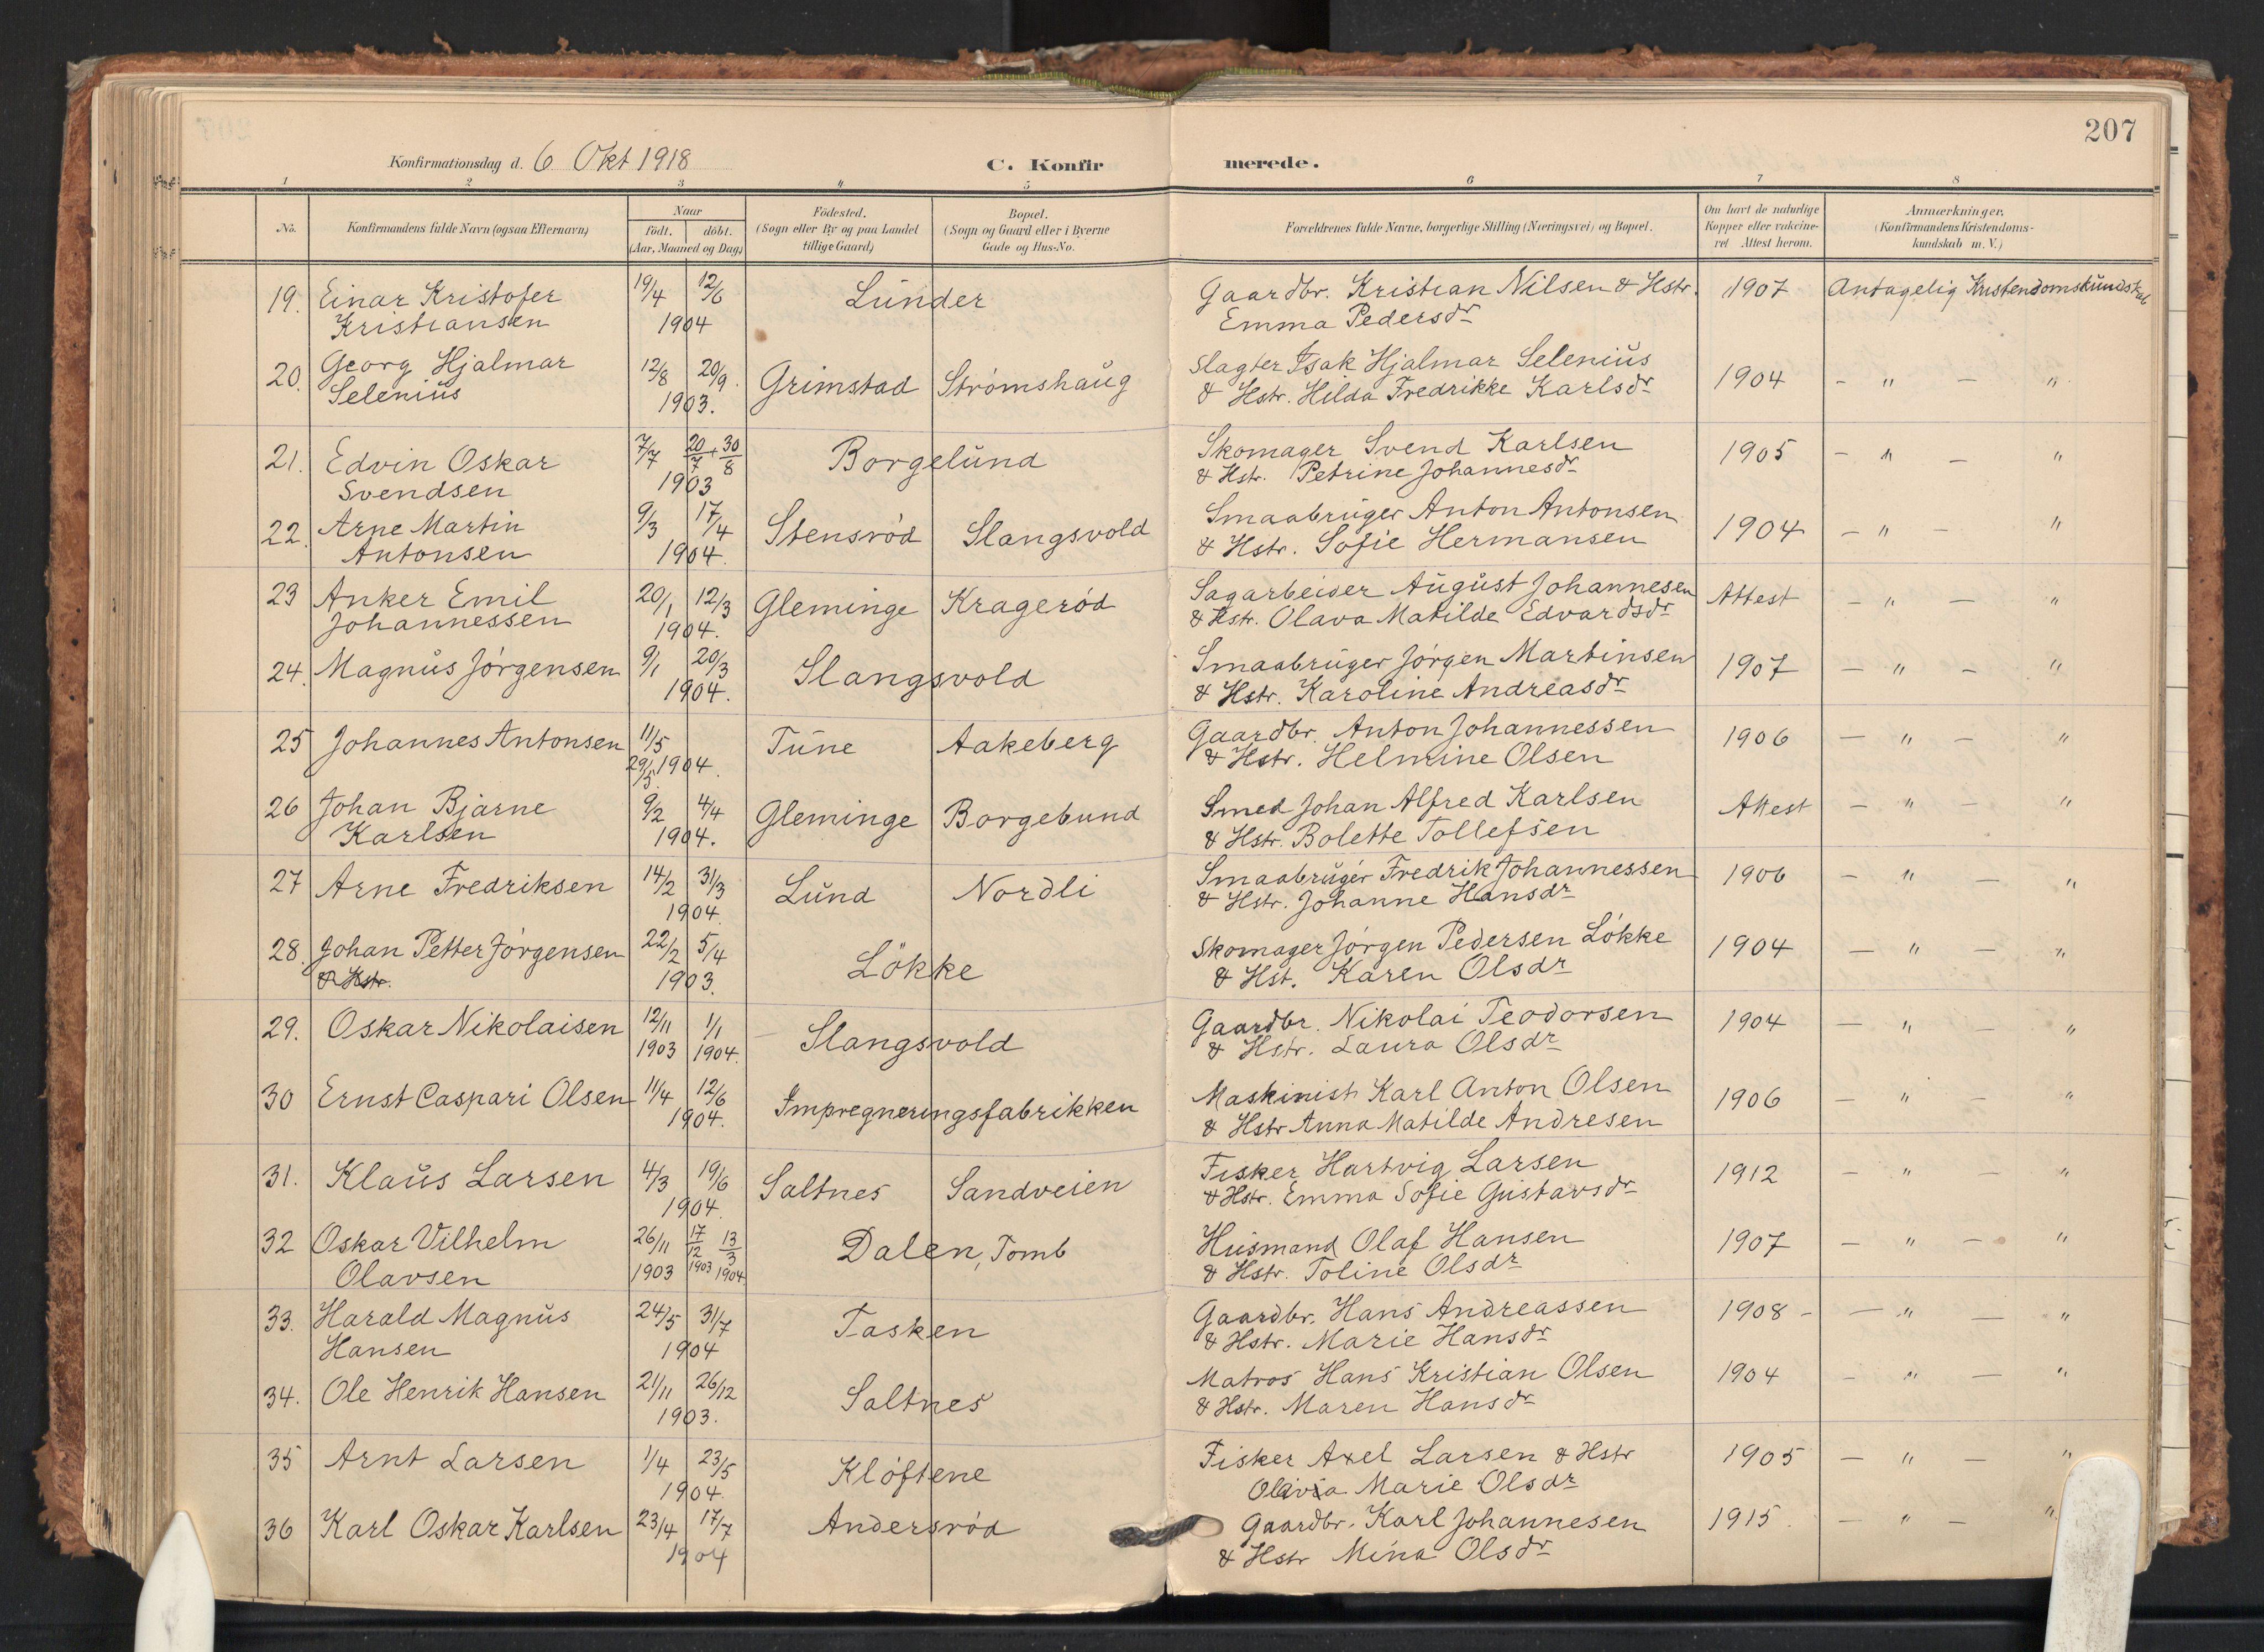 207
Konfirmationsdag d. 6 Okt 1918
C. Konfirmerede.
1 2 3 4 5 6 7 8
No.
Konfirmandens fulde Navn (ogsaa Efternavn)
Naar
födt. döbt.
(Aar, Maaned og Dag)
Födested.
(Sogn eller By og paa Landet
tillige Gaard)
Bopæl.
(Sogn og Gaard eller i Byerne
Gade og Hus-No.
Forældrenes fulde Navne, borgerlige Stilling (Næringsvei) og Bopæl.
Om havt de naturlige
Kopper eller vakcine-
ret Attest herom.
Anmærkninger,
(Konfirmandens Kristendoms-
kundskab m. V.)
19. Einar Kristofer 19/4 12/6 Lunder Gaardbr. Kristian Nilsen & Hstr. 1907 Antagelig Kristendomskundskab
Kristiansen 1904 Emma Pedersdr
20. Georg Hjalmar 12/8 20/9. Grimstad Strømshaug Slagter Isak Hjalmar Selenius 1904 - " - "
Selenius 1903. & Hstr. Hilda Fredrikke Karlsdr
21. Edvin Oskar 7/7 20/7 + 30/8 Borgelund Skomager Svend Karlsen 1905 - " - "
Svendsen 1903 & Hstr. Petrine Johannesdr
22. Arne Martin 9/3 17/4 Stensrød Slangsvold Smaabruger Anton Antonsen 1904 - " - "
Antonsen 1904. & Hstr. Sofie Hermansen
23 Anker Emil 20/1 12/3 Gleminge Kragerød Sagarbeider August Johannesen Attest - " - "
Johannessen 1904. & Hstr. Olava Matilde Edvardsdr
24. Magnus Jørgensen 9/1 20/3 Slangsvold Smaabruger Jørgen Martinsen 1907 - " - "
1904. & Hstr. Karoline Andreasdr
25 Johannes Antonsen 11/5 Tune Aakeberg Gaardbr. Anton Johannessen 1906 - " - "
29/5. 1904. & Hstr. Helmine Olsen
26 Johan Bjarne 9/2 4/4 Gleminge Borgebund Smed Johan Alfred Karlsen Attest - " - "
Karlsen 1904. & Hstr. Bolette Tollefsen
27 Arne Fredriksen 14/2 31/3 Lund Nordli Smaabruger Fredrik Johannessen 1906 - " - "
1904 & Hstr. Johanne Hansdr
28. Johan Petter Jørgensen 22/2 5/4 Løkke Skomager Jørgen Pedersen Løkke 1904 - " - "
& Hstr. 1903. & Hst. Karen Olsdr
29. Oskar Nikolaisen 12/11 1/1 Slangsvold Gaardbr. Nikolai Teodorsen 1904 - " - "
1903 1904. & Hstr. Laura Olsdr
30 Ernst Caspari Olsen 11/4 12/6 Impregneringsfabrikken Maskinist Karl Anton Olsen 1906 - " - "
1904. & Hstr Anna Matilde Andresen
31. Klaus Larsen 4/3 19/6 Saltnes Sandveien Fisker Hartvig Larsen 1912 - " - "
1904. & Hstr. Emma Sofie Gustavsdr
32 Oskar Vilhelm 26/11 17/12 13/3 Dalen, Tomb Husmand Olaf Hansen 1907 - " - "
Olavsen 1903 1903 1904 & Hstr. Toline Olsdr
33. Harald Magnus 24/5 31/7 Tasken Gaardbr. Hans Andreassen 1908 - - " - "
Hansen 1904 & Hstr. Marie Hansdr
34. Ole Henrik Hansen 21/11 26/12 Saltnes Matros Hans Kristian Olsen 1904 - " - "
1903. & Hstr. Maren Hansdr
35 Arnt Larsen 1/4 23/5 Kløftene Fisker Axel Larsen & Hstr 1905 - " - "
1904. Olivia Marie Olsdr
36 Karl Oskar Karlsen 23/4 17/7 Andersrød Gaardbr. Karl Johannesen 1915. - " - "
1904 & Hstr Mina Olsdr